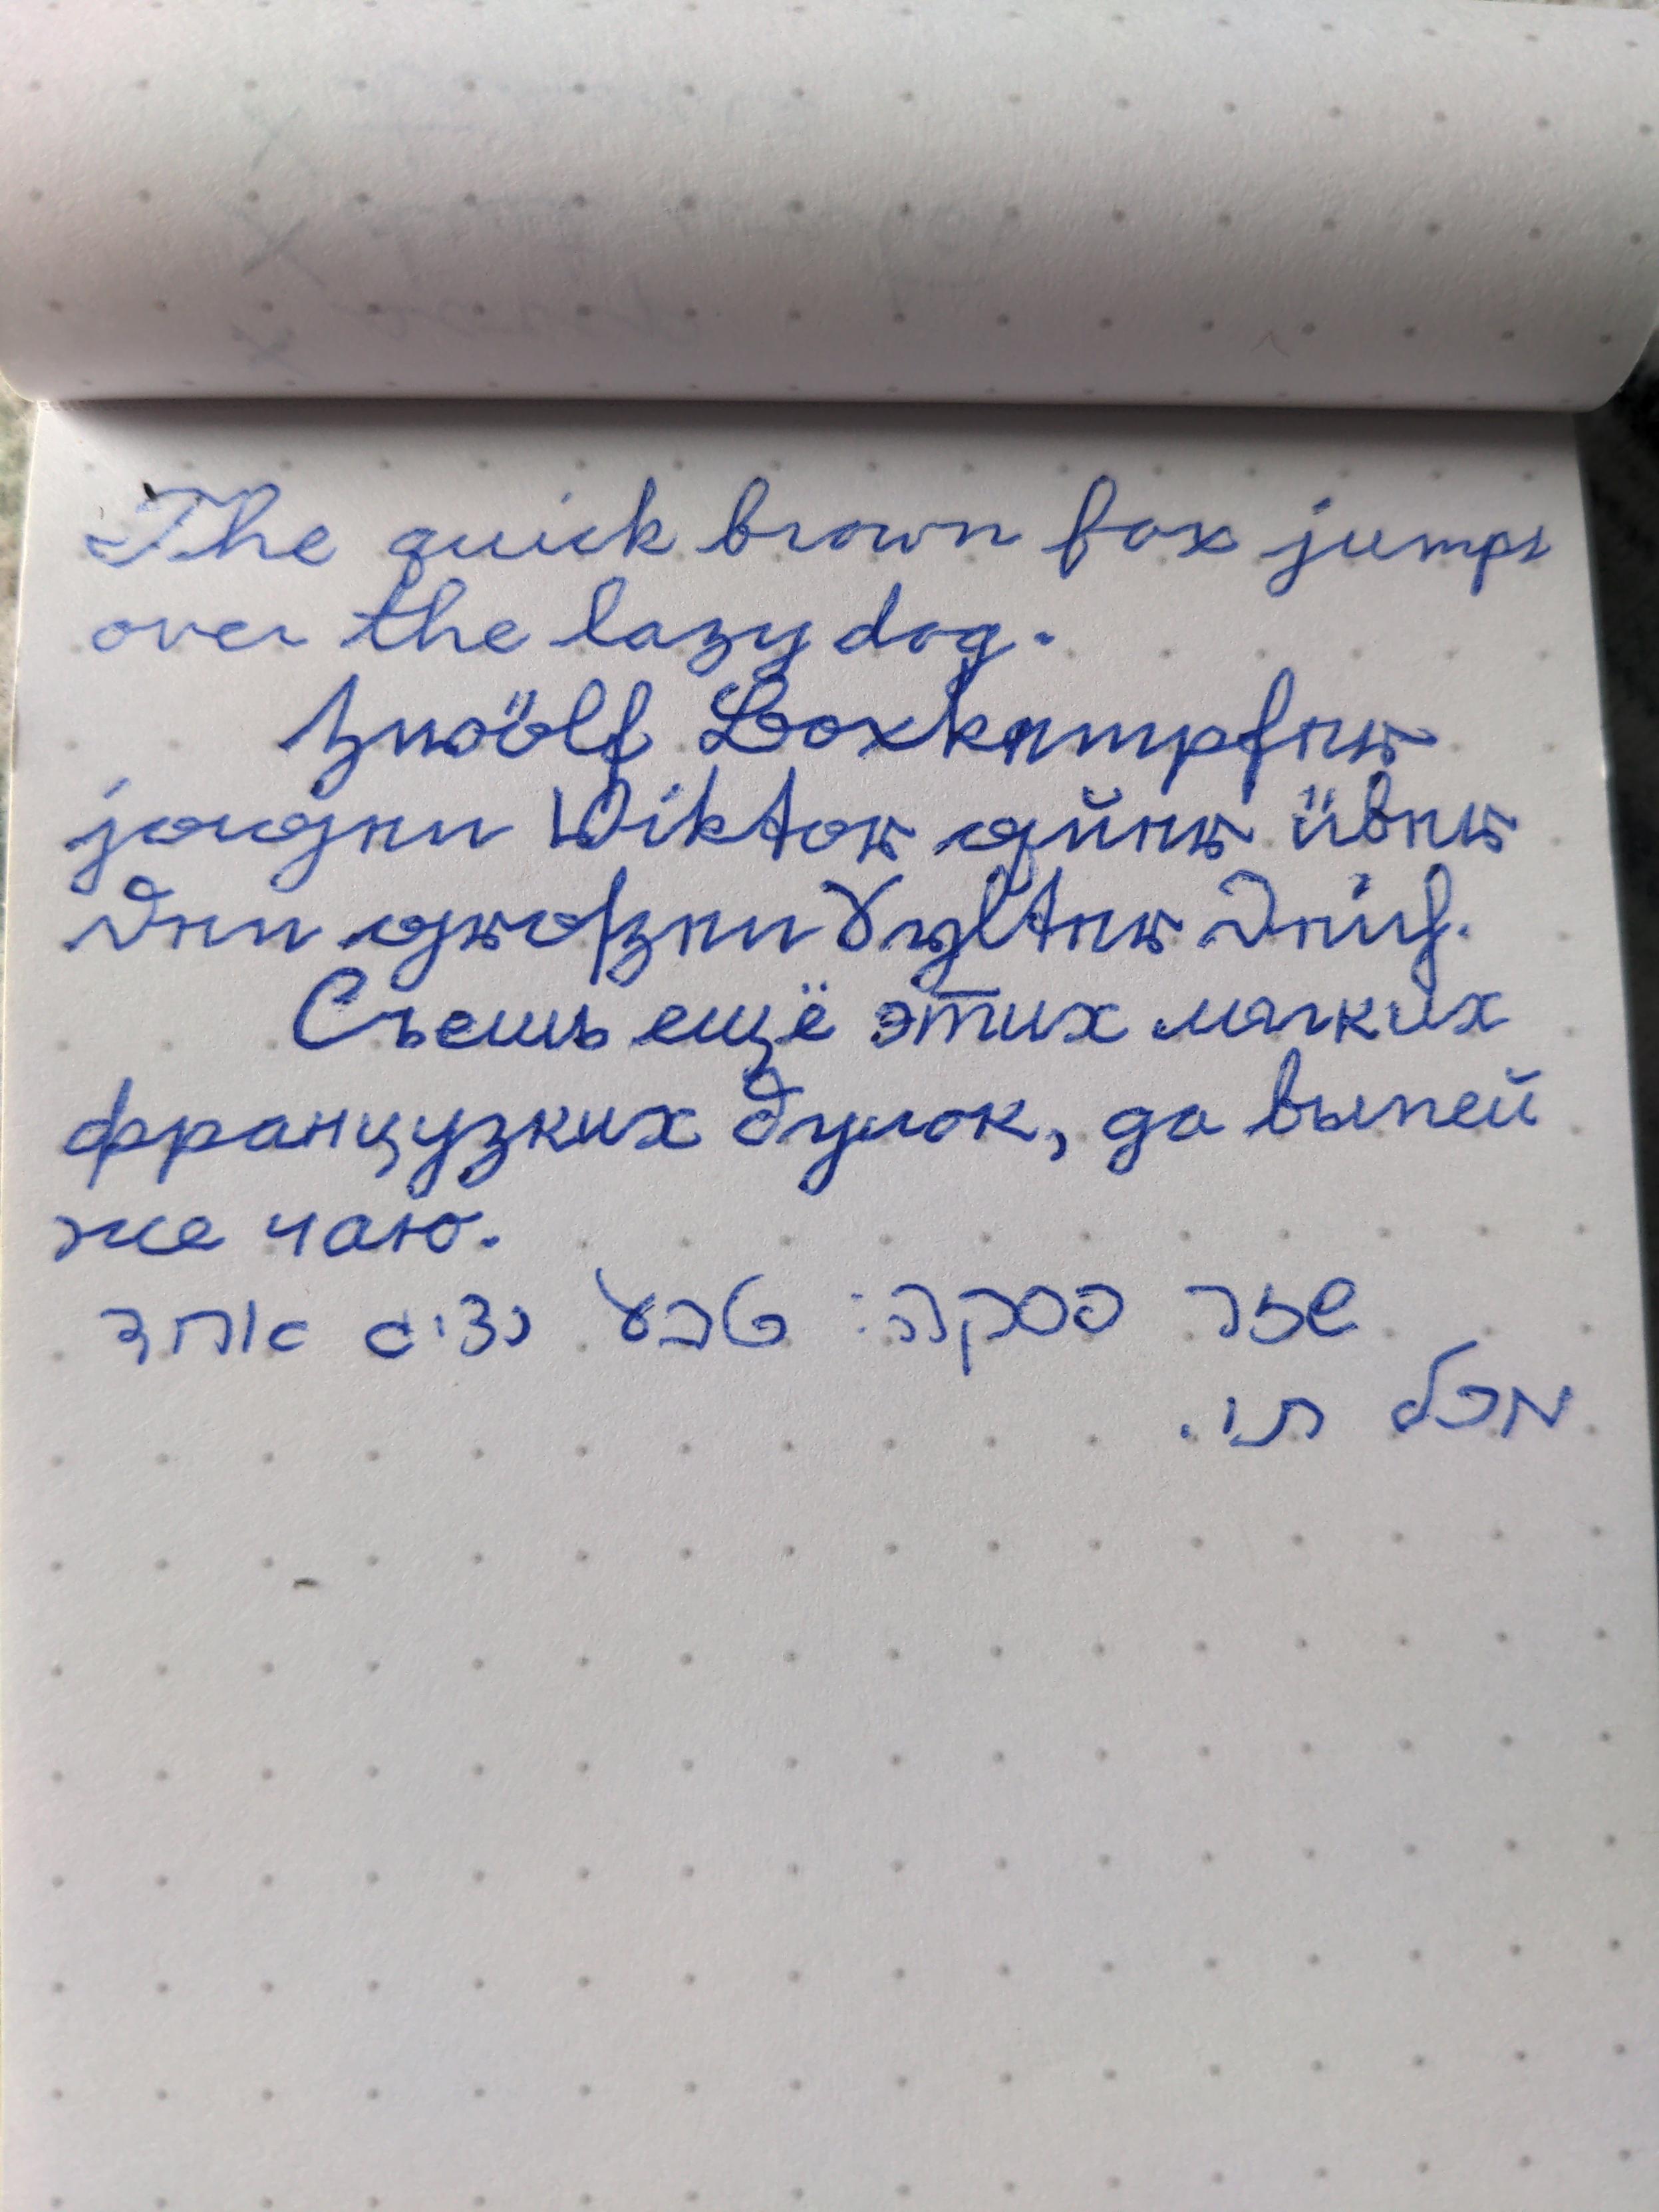 The quick brown fox jumps
over the lazy dog.
Zwölf Boxkampfer
jagen Viktor quer über
den großen Sylter Deich.
Съешь ещё этих мягких
французких булок, да выпей
же чаю.
שזר פסקה: טבע נציג אחד
מכל תו.